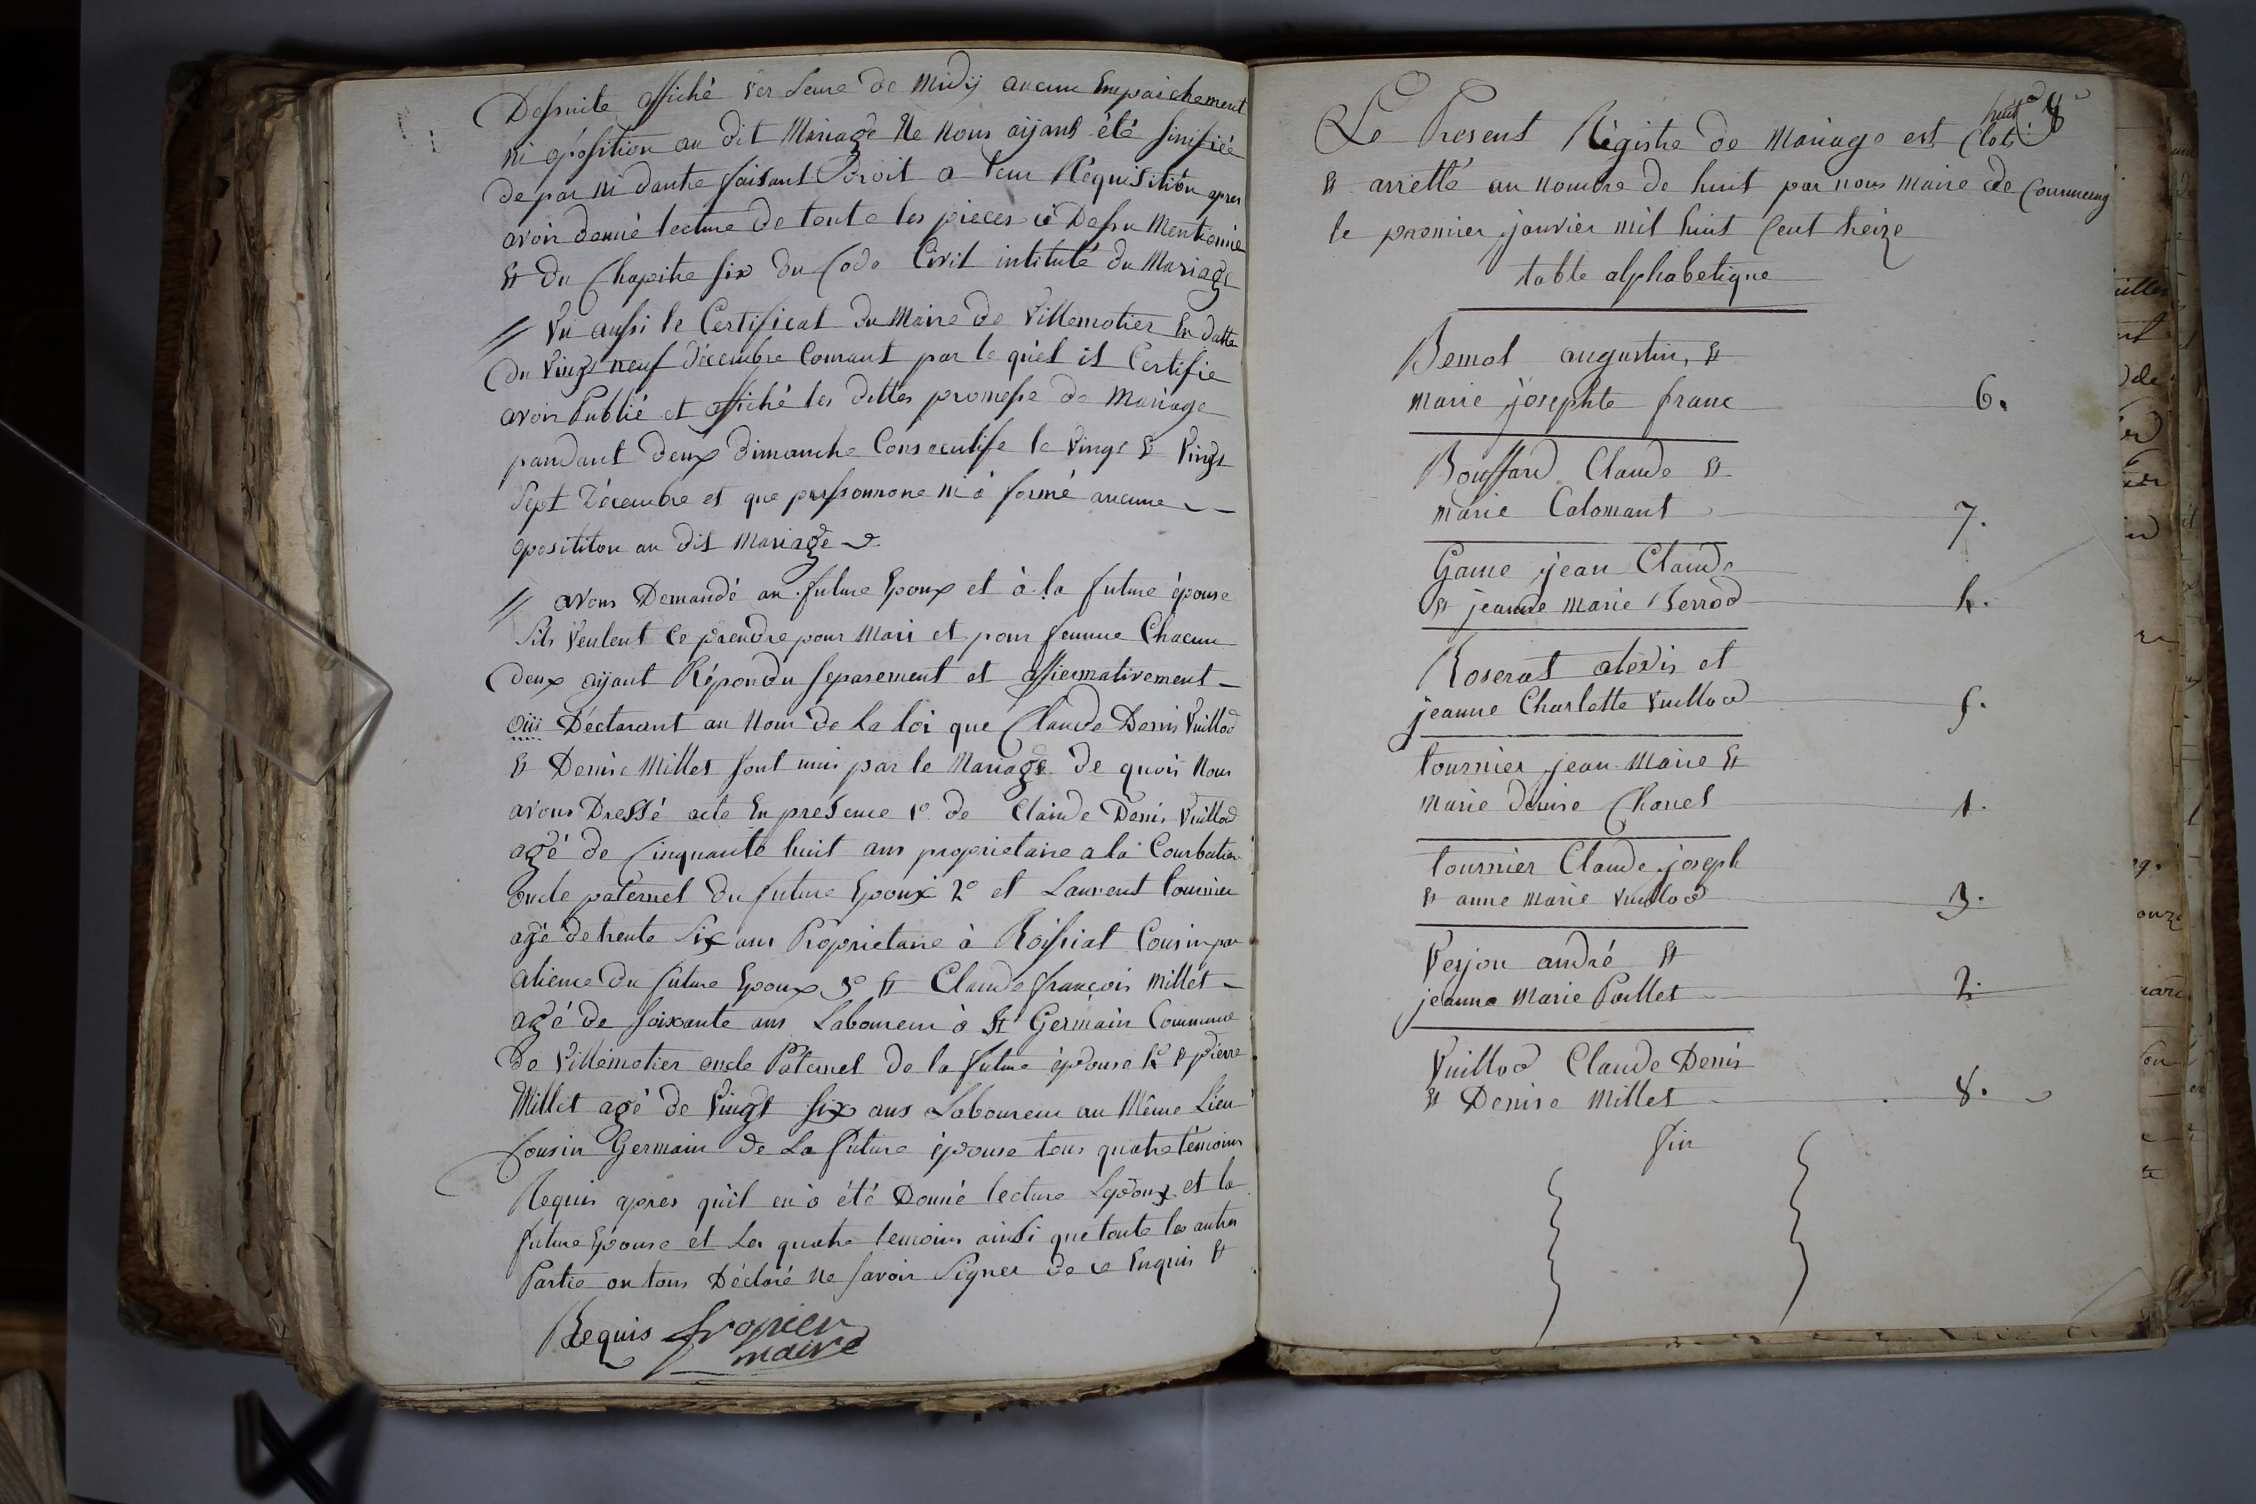 Desuite affiché ver Leure de Midÿ aucune Empaichement
ni oposition au dit Mariage Ne Nous aÿans été sinifiée
de par ni dautre faisant Droit a leur Réquisition apres
avoir donné lecture de toute les pieces ci Desu Mentionnée
Et du Chapitre six du Code Civil intitulé du Mariage
// Vu aussi le Certificat du Maire de Villemotier En datte
du Vingt neuf décembre Courant par le quel il Certifie
avoir Publié et affiché les dittes promesse de Mariage
pandant deux dimanche Consecutife le Vingt Et Vingt
Sept Décembre et que perssonnone ni à formé aucune
oposititon au dit Mariage
// avons Demandé au future Epoux et à la future épouse
Sils Veulent Ce prendre pour Mari et pour femme Chacun
deux aÿant Répondu separement et affiermativement
oüi Déclarant au Nom de La loi que Claude Denis Vuillod
Et Denise Millet sont unis par le Mariage de quois Nous
avons Dressé acte En presence 1º de Claude Denis Vuillod
agé de Cinquante huit ans proprietaire a la Courbatier
oncle paternel du future Epoux 2º et Laurent tournier
agé de trente Six ans Proprietaire à Roissiat Cousin par
alience du future Epoux 3º Et Claude françois Millet
agé de soixante ans Laboureur à St Germain Commune
de Villemotier oncle Paternel de la future épouse 4º Et pierre
Millet agé de Vingt six ans Laboureur au Même Lieu
Cousin Germain de La future épouse tous quatre témoins
Requis apres qu'il en à été Donné lecture Lepoux et la
future Epouse et Les quatre temoins ainsi que toute les autres
Partie on tous Déclaré Ne savoir Signer de ce Enquis Et
Requis
maire
huit 8
Le Present Régistre de Mariage est Clot
Et arretté au Nombre de huit par nous Maire de
le premier janvier mil huit Cent treize
table alphabetique
augustin, Et
marie josephte franc 6.
Bouffard Claude Et
marie Calomant 7.
Game jean Claude
Et jeanne Marie 4.
Roserat alexis et
jeanne Charlotte Vuillod 5.
tournier jean Marie Et
Marie denise Chanel 1.
tournier Claude joseph
Et anne Marie Vuillod 3.
Verjon andré Et
jeanne Marie Paillet 2.
Vuillod Claude Denis
Et Denise Millet 8.
fin